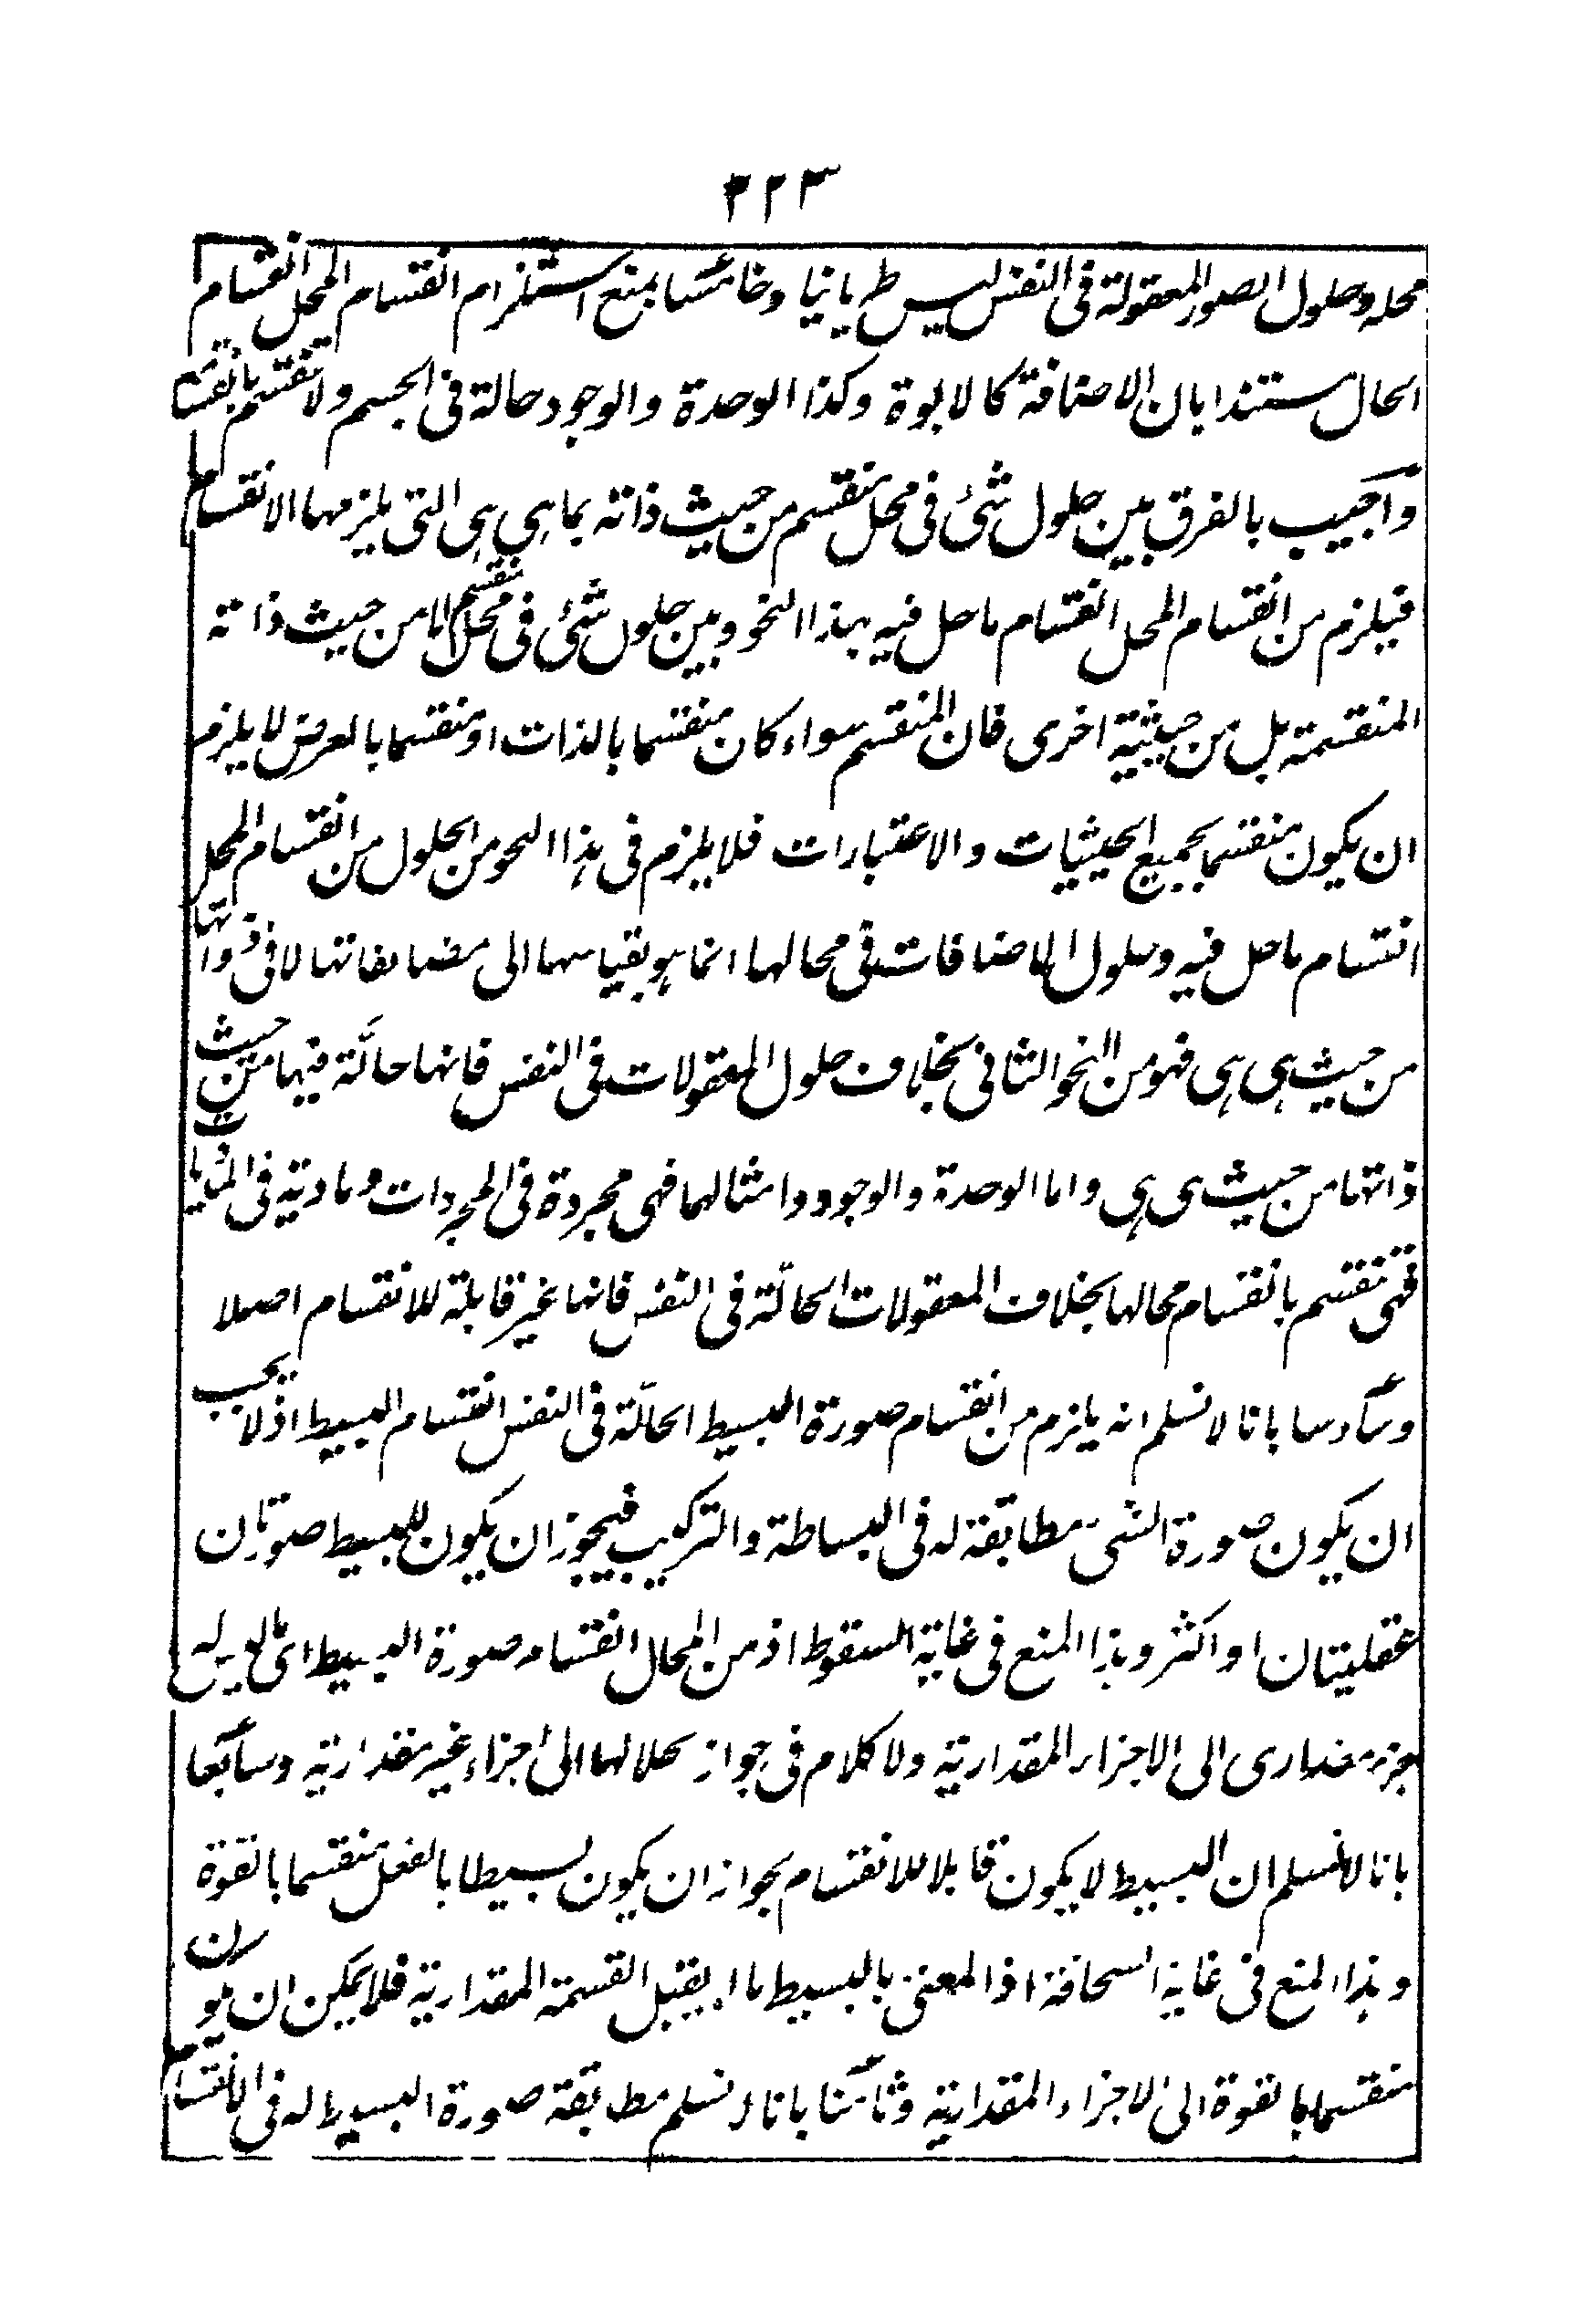 ٣٢٣
محله وحلول الصور المعقولة في النفس ليس طريانيا وخامسا بمنع استلزام انقسام المحل انقسام
الحال مستندا بان الاضافة كالابوة وكذا الوحدة والوجود حالة في الجسم ولا تنقسم بانقسامه
واجيب بالفرق بين حلول شئ في محل منقسم من حيث ذاته بما هي هي التي يلزمها الانقسام
فيلزم من انقسام المحل انقسام ما حل فيه بهذا النحو وبين حلول شئ في محل منقسم لا من حيث ذاته
المنقسمة بل من حيثية اخرى فان المنقسم سواء كان منقسما بالذات او منقسما بالعرض لا يلزم
ان يكون منقسما بجميع الحيثيات والاعتبارات فلا يلزم في هذا النحو من الحلول من انقسام المحل
انقسام ما حل فيه وحلول الاضافات في محالها انما هو بقياسها الى مضايفاتها لا في ذواتها
من حيث هي هي فهو من النحو الثاني بخلاف حلول المعقولات في النفس فانها حالّة فيها من حيث
ذاتها من حيث هي هي واما الوحدة والوجود وامثالهما فهي مجردة في المجردات ومادية في الماديات
فهي تنقسم بانقسام محالها بخلاف المعقولات الحالّة في النفس فانها غير قابلة للانقسام اصلا
وسادسا بانا لا نسلم انه يلزم من انقسام صورة البسيط الحالّة في النفس انقسام البسيط اذ لا يجب
ان يكون صورة الشئ مطابقة له في البساطة والتركيب فيجوز ان يكون للبسيط صورتان
عقليتان او اكثر وهذا المنع في غاية السقوط اذ من المحال انقسام صورة البسيط اى ما ليس له
جزء مقدارى الى الاجزاء المقدارية ولا كلام في جواز تحلالها الى اجزاء غير مقدارية وسابعا
بانا لا نسلم ان البسيط لا يكون قابلا للانقسام بجواز ان يكون بسيطا بالفعل منقسما بالقوة
وهذا المنع في غاية السخافة اذ المعنى بالبسيط ما لا يقبل القسمة المقدارية فلا يمكن ان يكون
منقسما بالقوة الى الاجزاء المقدارية وثامنا بانا لا نسلم مطابقة صورة البسيط له في الانقسام